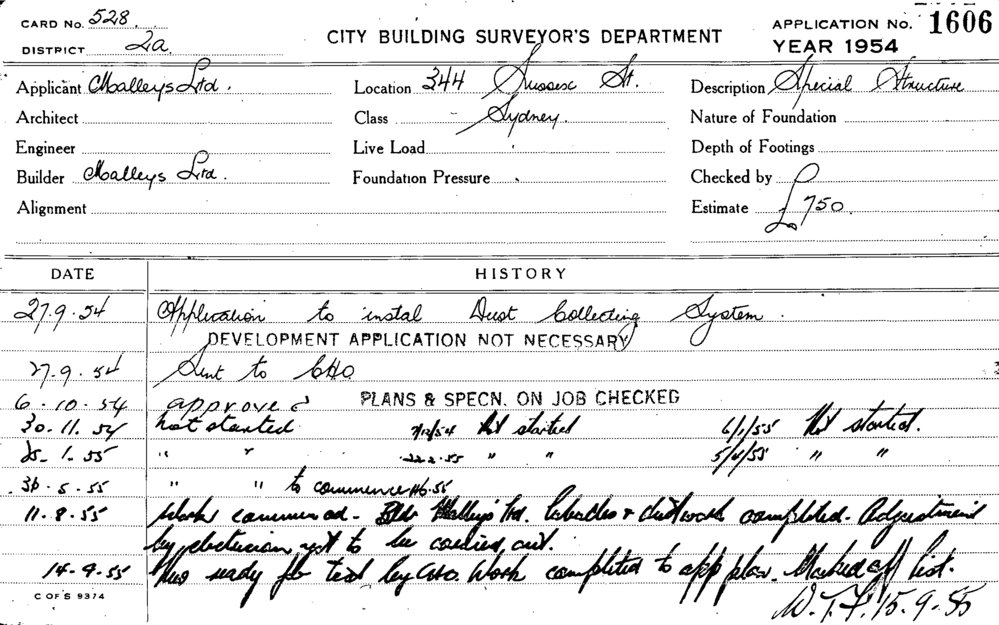 CARD No. 528. CITY BUILDING SURVEYOR'S DEPARTMENT APPLICATION No. 1606
DISTRICT 2a YEAR 1954
Applicant Malleys Ltd. Location 344 Sussex St. Description Special Structure
Architect Class Sydney. Nature of Foundation
Engineer Live Load Depth of Footings
Builder Malleys Ltd. Foundation Pressure Checked by
Alignment Estimate £750.
DATE HISTORY
27.9.54 Application to instal Dust Collecting System.
DEVELOPMENT APPLICATION NOT NECESSARY
27.9.54 Sent to CHO
6.10.54 approved PLANS & SPECN. ON JOB CHECKED
30.11.54 not started 7/12/54 Not started 6/1/55 Not started.
25.1.55 " " 22.2.55 " " 5/4/55 " "
30.5.55 " " to commence 1.6.55
11.8.55 Work commenced. Bldr Malleys Ltd. & ductwork completed. Adjustment
by electrician yet to be carried out.
14.9.55 Now ready for test by CHO. Work completed to app plan. Marked off list.
C OF S 9374 W.T.F. 15.9.55